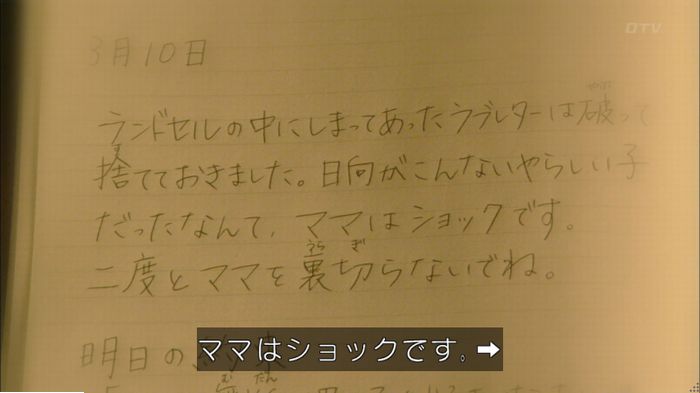 OTV
3月10日
ランドセルの中にしまってあったラブレターは破って
捨てておきました。日向がこんないやらしい子
だったなんて、ママはショックです。
二度とママを裏切らないでね。
明日の
ママはショックです。➡